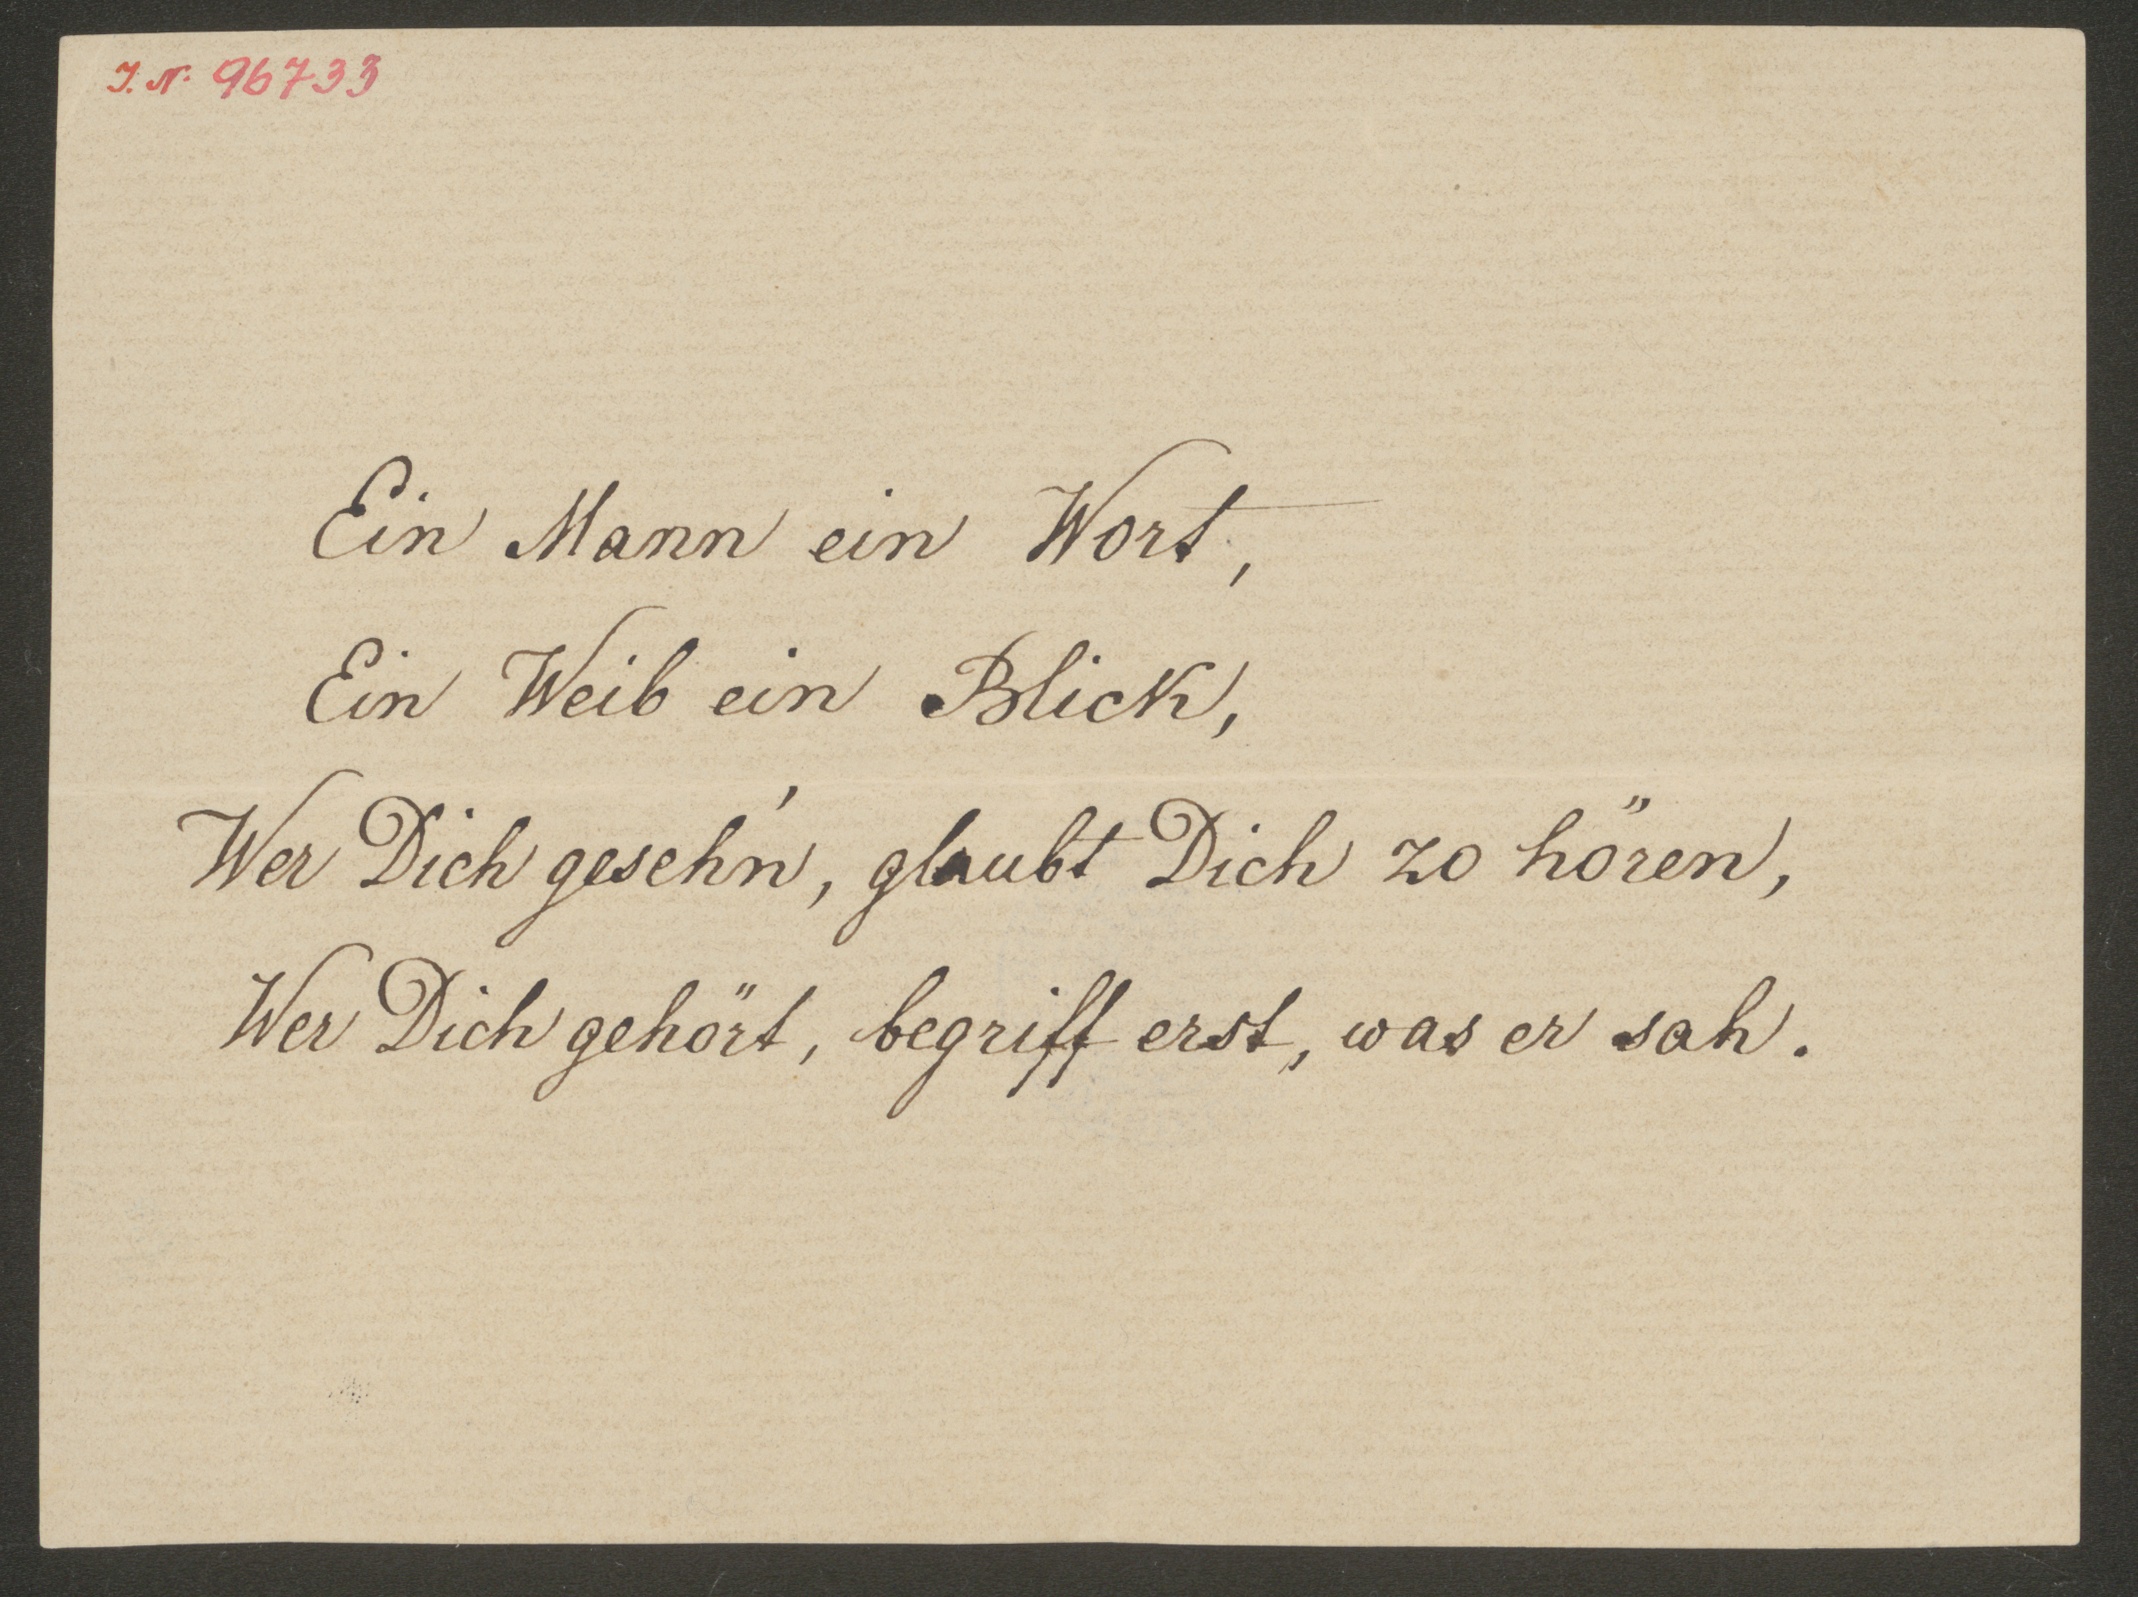 I. N. 96733
Ein Mann ein Wort,
Ein Weib ein Blick,
Wer Dich geseh'n, glaubt Dich zo hören,
Wer Dich gehört, begriff erst, was er sah.